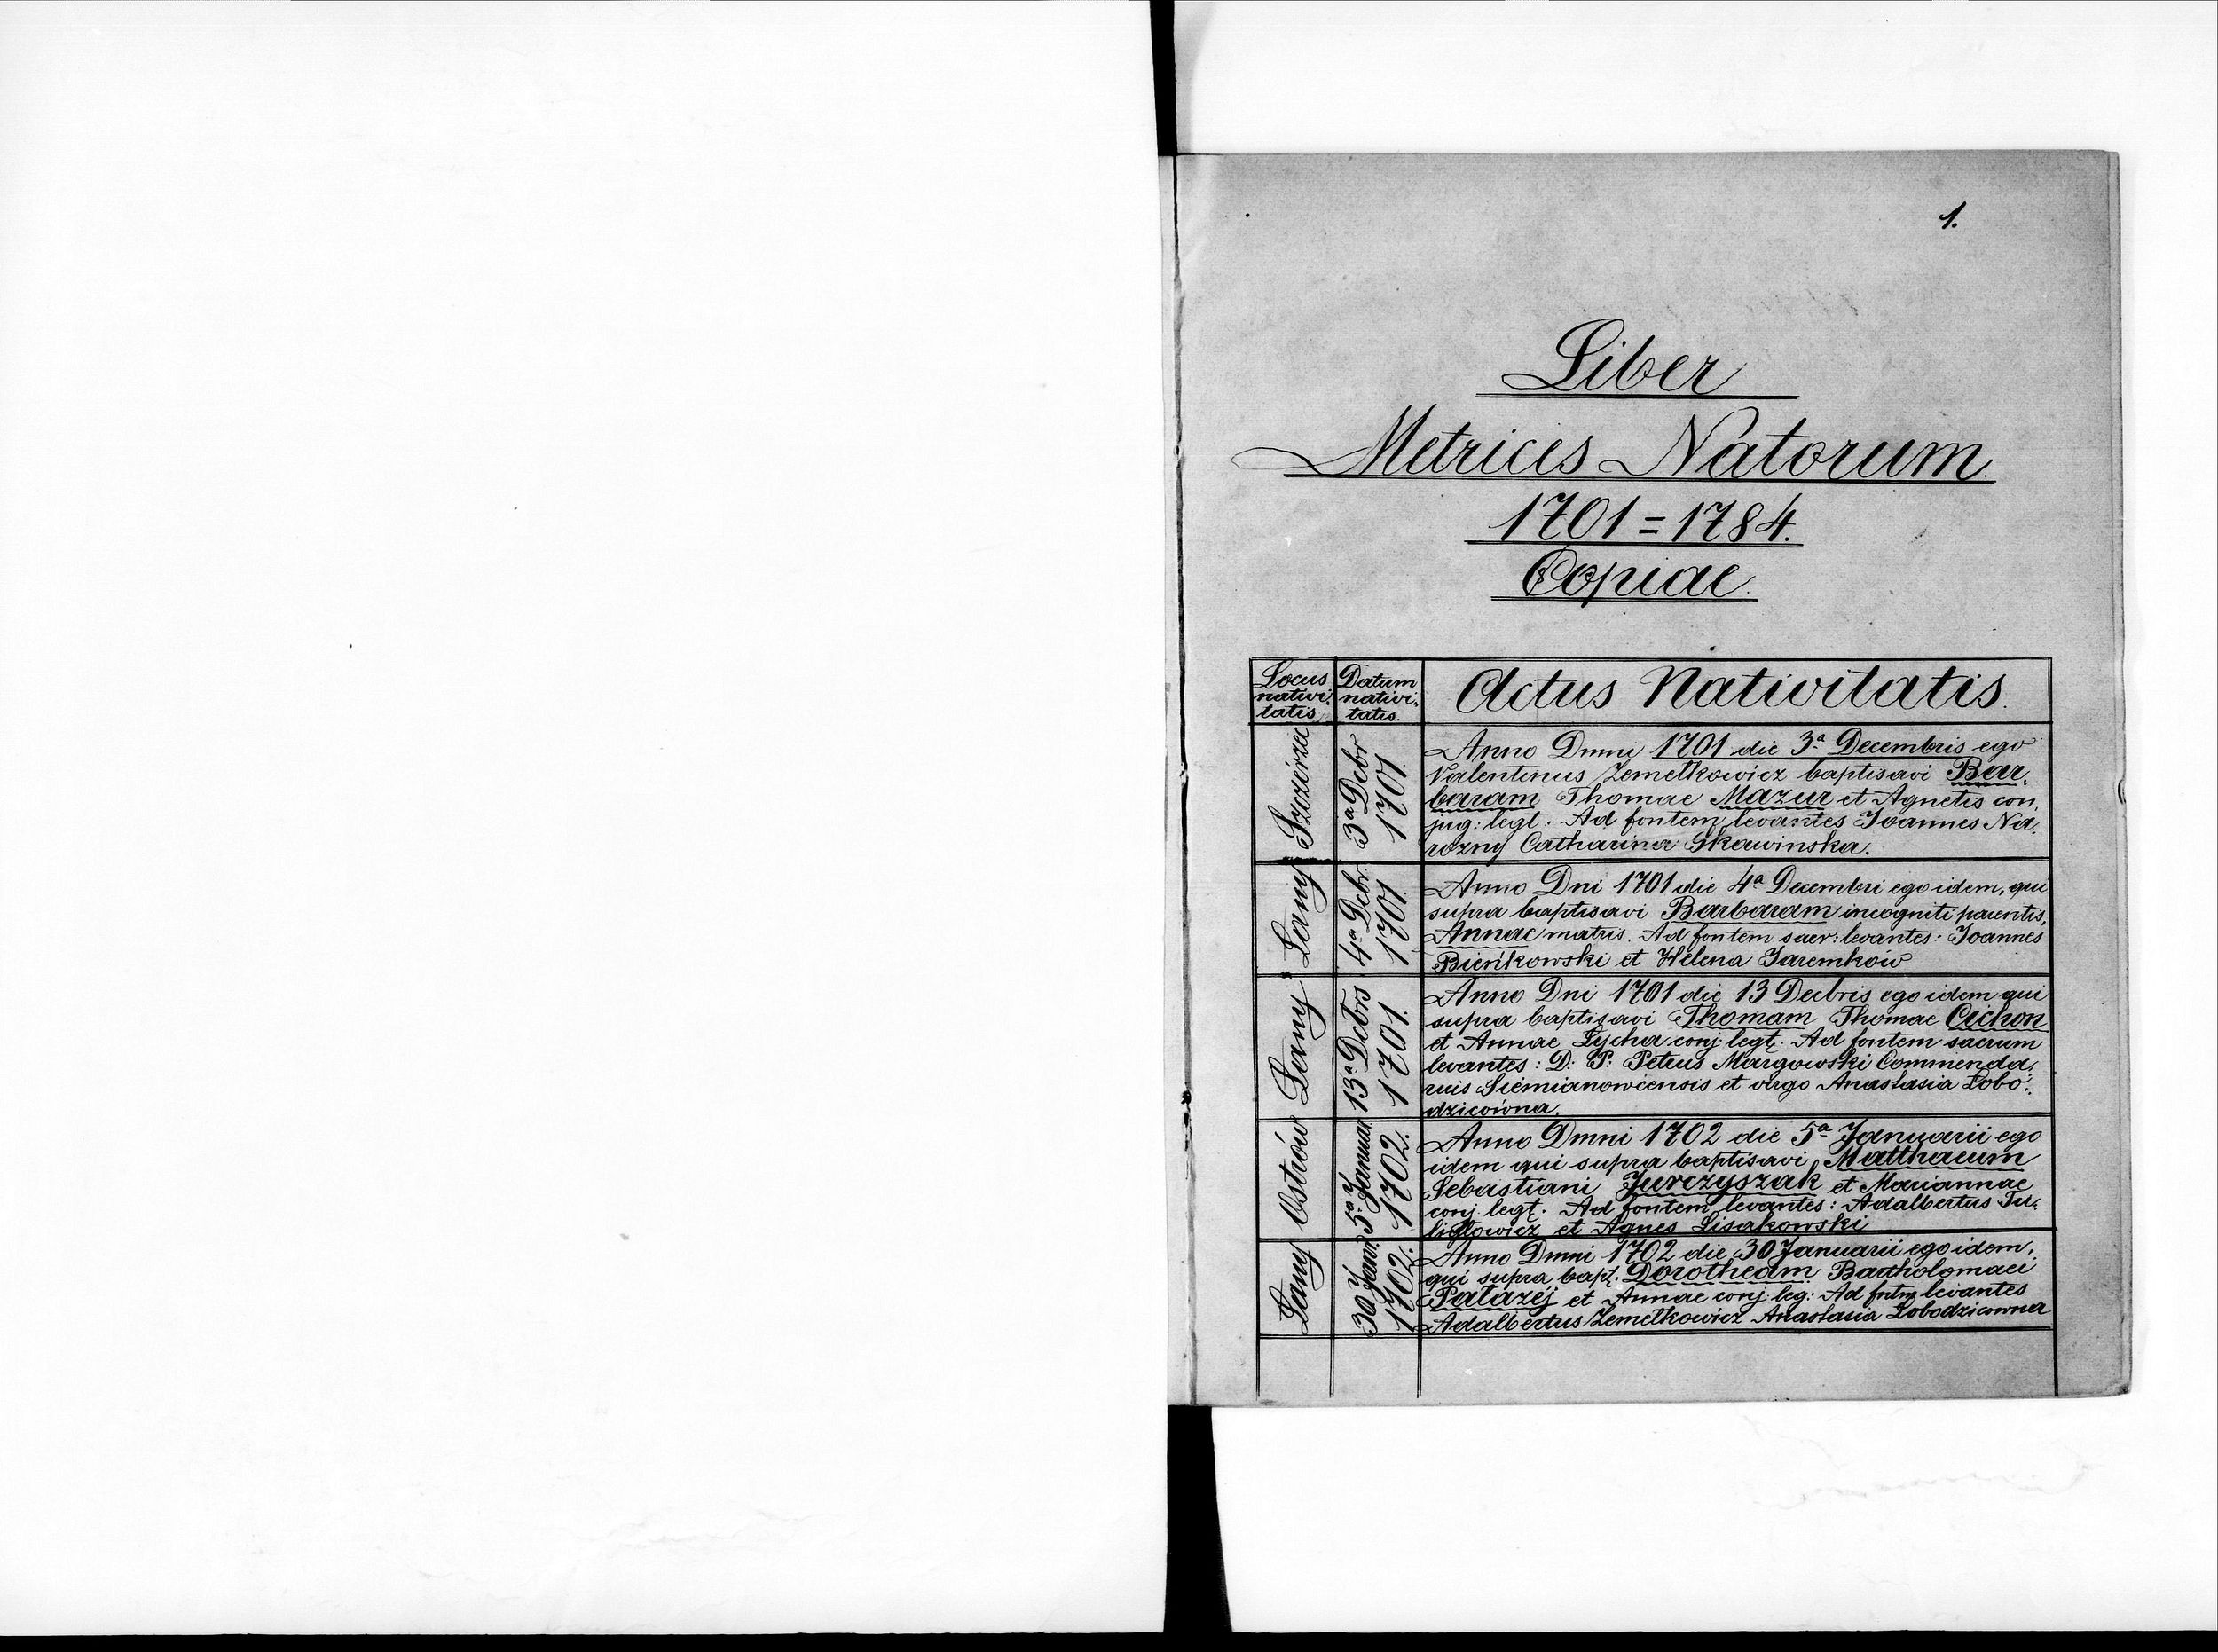 1.
Liber
Metrices Natorum.
1701=1784.
Copiae.
Locus nativi-tatis
Datum nativi-tatis.
Actus Nativitatis.
Szczérzec
3ª Debr 1701.
Anno Dmni 1701 die 3ª Decembris ego
Valentinus Zemełkowicz baptisavi Bar-
baram Thomae Mazur et Agnetis con-
jug: legt. Ad fontem levantes Joannes Na-
rozny Catharina Skawinska.
Łany
4ª Debr 1701.
Anno Dni 1701 die 4ª Decembri ego idem, qui
supra baptisavi Barbaram incogniti parentis,
Annae matris. Ad fontem sacr: levantes: Joannes
Bieńkowski et Helena Jaremkow
Łany
13ª Debrs 1701.
Anno Dni 1701 die 13 Decbris ego idem qui
supra baptisavi Thomam Thomae Cichon
et Annae Łycha conj: legt. Ad fontem sacrum
levantes: D: P: Petrus Margowski Commenda-
rius Siemianowcensis et virgo Anastasia Łobo-
dzicowna.
Ostrów
5ª Januar 1702.
Anno Dmni 1702 die 5ª Januarii ego
idem qui supra baptisavi Matthaeum
Sebastiani Jurczyszak et Mariannae
conj. legt. Ad fontem levantes: Adalbertus Tu-
liglowicz et Agnes Lisakowski
Łany
30 Janr. 1702.
Anno Dmni 1702 die 30 Januarii ego idem,
qui supra bapt. Dorotheam Bartholomaei
Patazej et Annae conj: leg: Ad fntm levantes
Adalbertus Zemełkowicz Anastasia Łobodzicowna